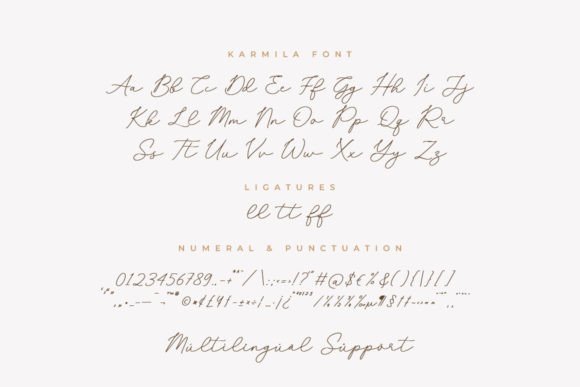 KARMILA FONT
Aa Bb Cc Dd Ee Ff Gg Hh Ii Jj
Kk Ll Mm Nn Oo Pp Qq Rr
Ss Tt Uu Vv Ww Xx Yy Zz
LIGATURES
ll tt ff
NUMERAL & PUNCTUATION
0123456789
Múltilingúal Súpport